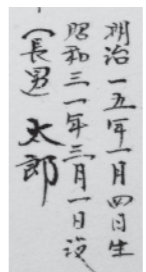 明治一五年一月四日生
昭和三一年三月一日没
（長男）太郎